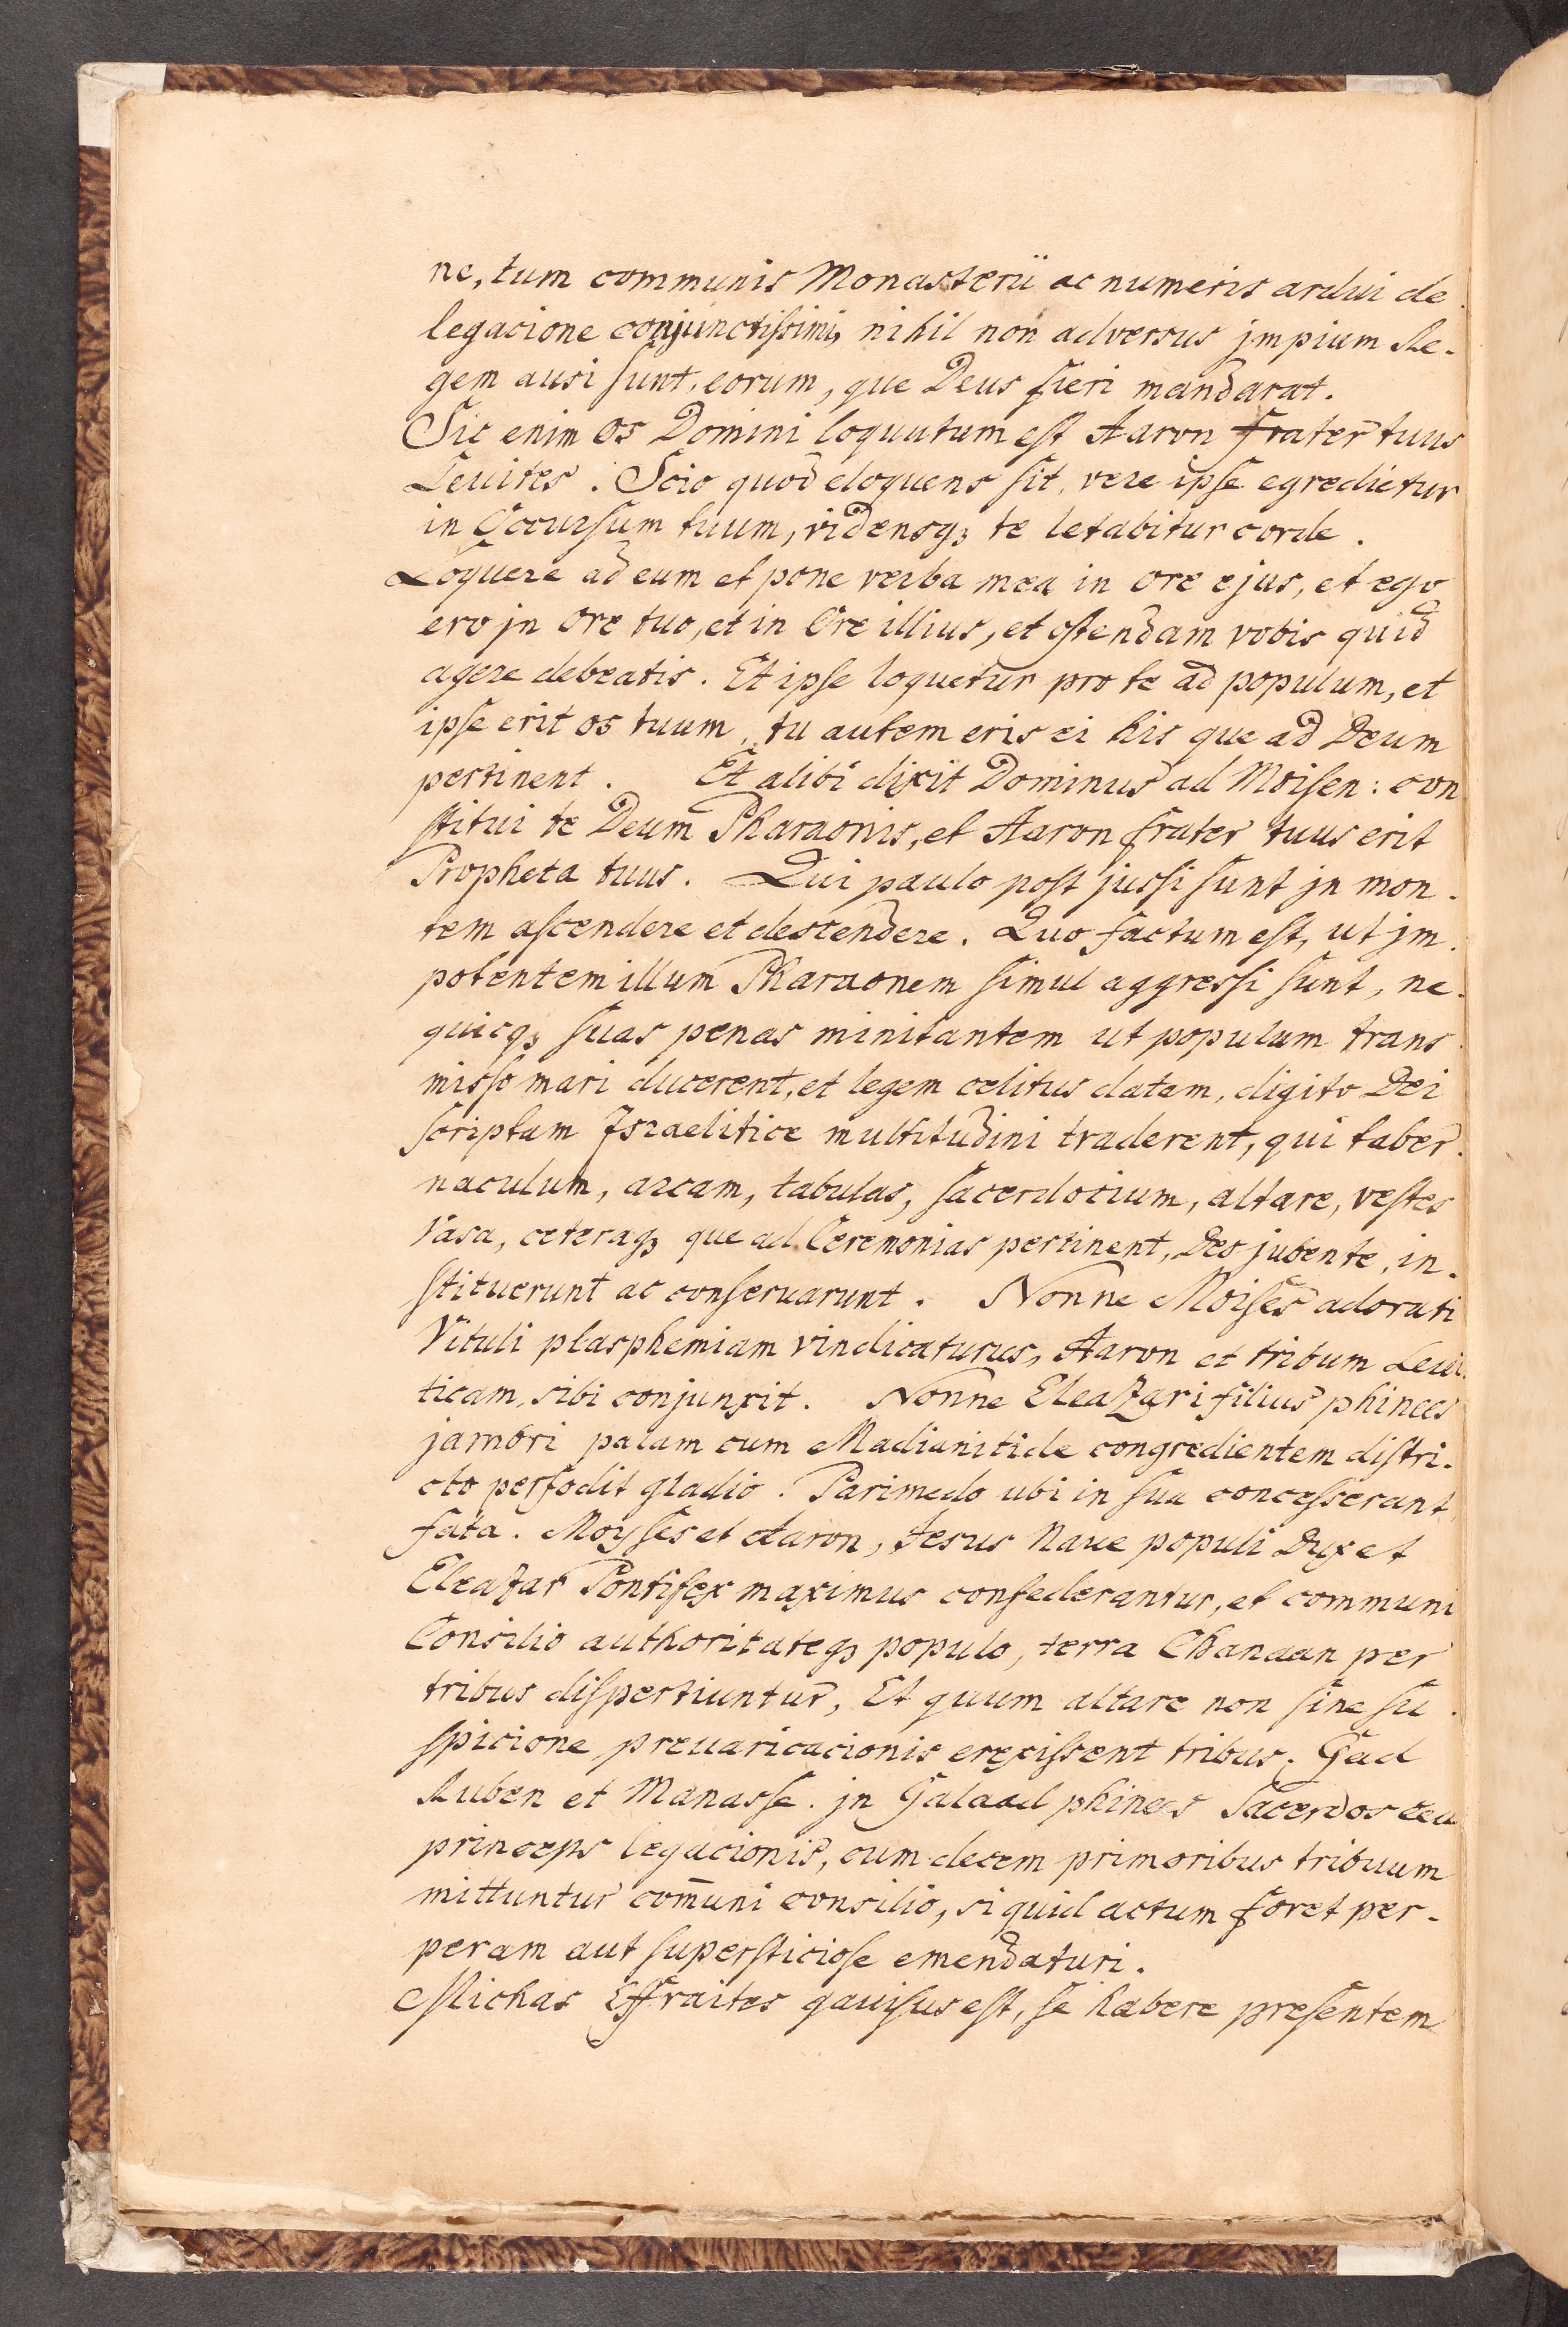 ne, tum communis Monasterii ac numeris ardui de
legacione conjunctissimi, nihil non adversus jmpium Re-
gem ausi sunt, eorum, que Deus fieri mandarat.
Sic enim os Domini loquutum est Aaron frater tuus
Leuites. Scio quod eloquens sit, vere ipse egredietur
in Occursum tuum, vidensqꝫ te letabitur corde.
Loquere ad eum et pone verba mea in ore ejus, et ego
ero jn ore tuo, et in Ore illius, et ostendam vobis quid
agere debeatis. Et ipse loquetur pro te ad populum, et
ipse erit os tuum, tu autem eris ei his que ad Deum
pertinent. Et alibi dixit Dominus ad Moisen: con
stitui te Deum Pharaonis, et Aaron frater tuus erit
Propheta tuus. Qui paulo post jussi sunt jn mon-
tem ascendere et destendere. Quo factum est, ut jm-
potentem illum Pharaonem simul aggressi sunt, ne-
quicqꝫ suas penas minitantem ut populum trans
misso mari ducerent, et legem celitus datam, digito Dei
scriptam Israelitice multitudini traderent, qui taber-
naculum, arcam, tabulas, sacerdocium, altare, vestes
Vasa, ceteraqꝫ que ad Ceremonias pertinent, Deo jubente, in-
stituerunt ac conseruarunt. Nonne Moises adorati
Vituli plasphemiam vindicaturus, Aaron et tribum Leui-
ticam, sibi conjunxit. Nonne Eleazari filius phinees
jambri palam cum Madianitide congredientem distri-
cto perfodit gladio. Parimodo ubi in sua concesserant
fata. Moyses et Aaron, Jesus Naue populi Dux et
Eleazar Pontifex maximus confederantur, et communi
Consilio authoritateqꝫ populo, terra Chanaan per
tribus dispertiuntur, Et quum altare non sine su-
spicione preuaricacionis erexissent tribus. Gad
Ruben et Manasse. jn Galaad phinees Sacerdos ceu
princeps legacionis, cum decem primoribus tribuum
mittuntur com̄uni consilio, si quid actum foret per-
peram aut supersticiose emendaturi.
Michas Effraites gauisus est, se habere presentem